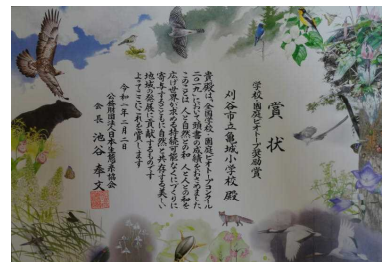 賞状
学校・園庭ビオトープ奨励賞
刈谷市立亀城小学校殿
貴殿は、全国学校・園庭ビオトープコンクール
二〇一九において頭書の成績をおさめました
このことは、人と自然との和、人と人との和を
広げ世界が求める持続可能なくにづくりに
寄与するとともに自然と共存する美しい
地域の発展に貢献するものです
よってここにこれを賞します
令和二年二月二日
公益財団法人日本生態系協会
会長 池谷奉文